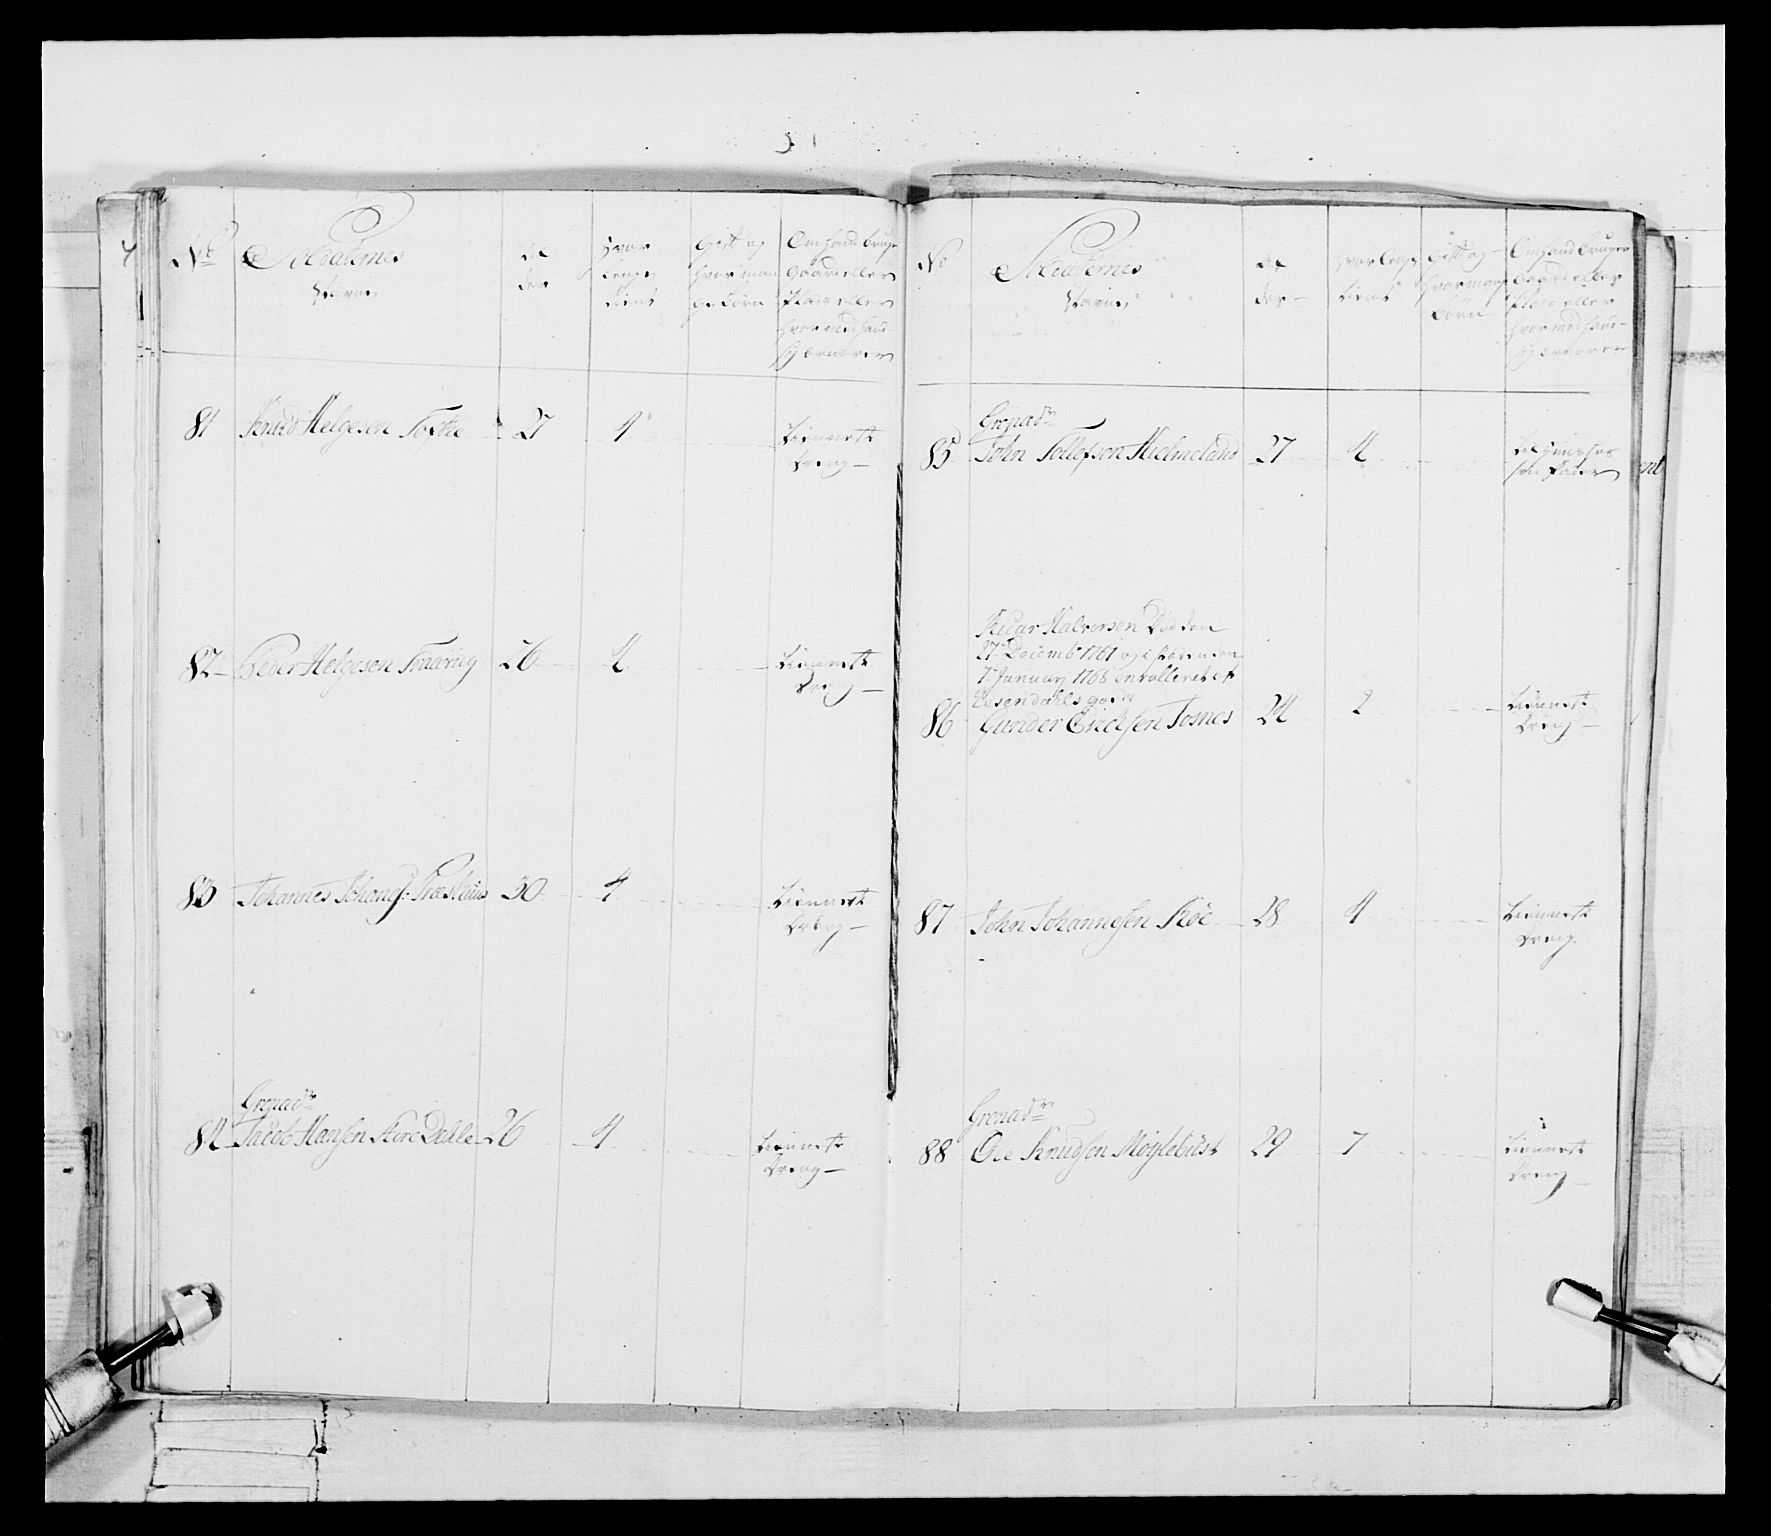 No
Soldaternes
Navne
Al
der
Hvor
lenge
tient
Gift og
hvor man
ge börn
Om hand bruger
Gaard eller
Plads eller
hvormed hand
sig ernærer
81 Knud Helgesen Tofte 27 4
tienneste
Dreng
82 Peder Helgesen 26 4
tienneste
Dreng
83 Johannes 30 4
tienneste
Dreng
Grenadr
84 Jacob Hansen Dalle 26 4
tienneste
Dreng
No
Soldaternes
Navne
Al
der
Hvor lenge
tient
Gift og
hvor mange
börn
Om hand bruger
Gaard eller
Plads eller
hvormed hand
sig ernærer
Grenadr
85 John Tollefsen Hielmeland 27 4
Fader
Halvorsen Död den
27 Decembr 1767 og i steden den
7 January 1768 enrolleret af
Rosendahls gods
86 Gunder Ericksen Tosnes 24 2
tienneste
Dreng
87 John Johannesen 28 4
tienneste
Dreng
Grenadr
88 Ole Knudsen Möglebust 29 7
tienneste
Dreng